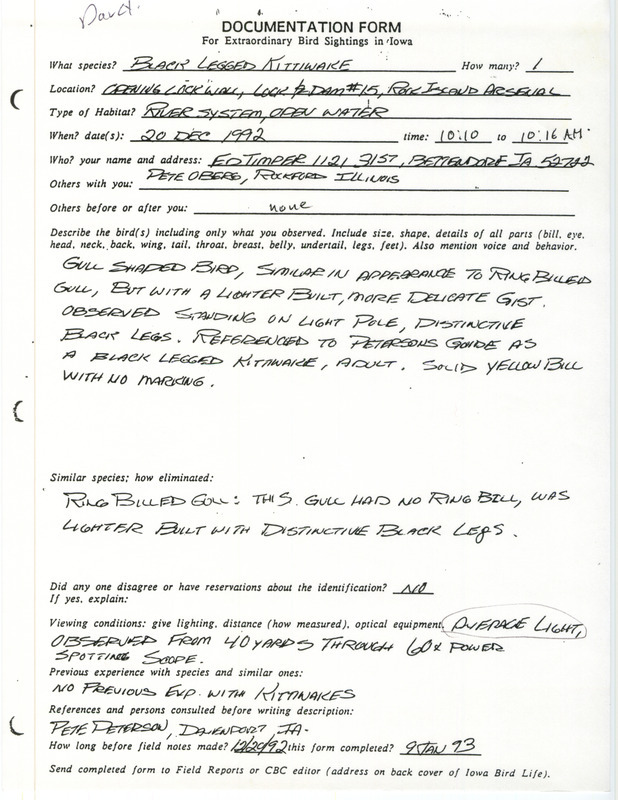 DOCUMENTATION FORM
For Extraordinary Bird Sightings in Iowa
What species? BLACK LEGGED KITTIWAKE How many? 1
Location? OPENING LOCK WALL, LOCK & DAM #15, ROCK ISLAND ARSENAL
Type of Habitat? RIVER SYSTEM, OPEN WATER
When? date(s): 20 DEC 1992 time: 10:10 to 10:16 AM.
Who? your name and address: ED TIMPER 1121 31ST, BETTENDORF IA 52722
Others with you: PETE OBERG, ROCKFORD ILLINOIS
Others before or after you: none
Describe the bird(s) including only what you observed. Include size, shape, details of all parts (bill, eye,
head, neck, back, wing, tail, throat, breast, belly, undertail, legs, feet). Also mention voice and behavior.
GULL SHADED BIRD, SIMILAR IN APPEARANCE TO RING BILLED
GULL, BUT WITH A LIGHTER BUILT, MORE DELICATE GIST.
OBSERVED STANDING ON LIGHT POLE, DISTINCTIVE
BLACK LEGS. REFERENCED TO PETERSONS GUIDE AS
A BLACK LEGGED KITTIWAKE, ADULT. SOLID YELLOW BILL
WITH NO MARKING.
Similar species; how eliminated:
RING BILLED GULL: THIS GULL HAD NO RING BILL, WAS
LIGHTER BUILT WITH DISTINCTIVE BLACK LEGS.
Did any one disagree or have reservations about the identification? NO
If yes, explain:
Viewing conditions: give lighting, distance (how measured), optical equipment. AVERAGE LIGHT,
OBSERVED FROM 40 YARDS THROUGH 60X POWER
SPOTTING SCOPE.
Previous experience with species and similar ones:
NO PREVIOUS EXP. WITH KITTIWAKES
References and persons consulted before writing description:
PETE PETERSON, DAVENPORT, IA.
How long before field notes made? 12/20/92 this form completed? 9 JAN 93
Send completed form to Field Reports or CBC editor (address on back cover of Iowa Bird Life).